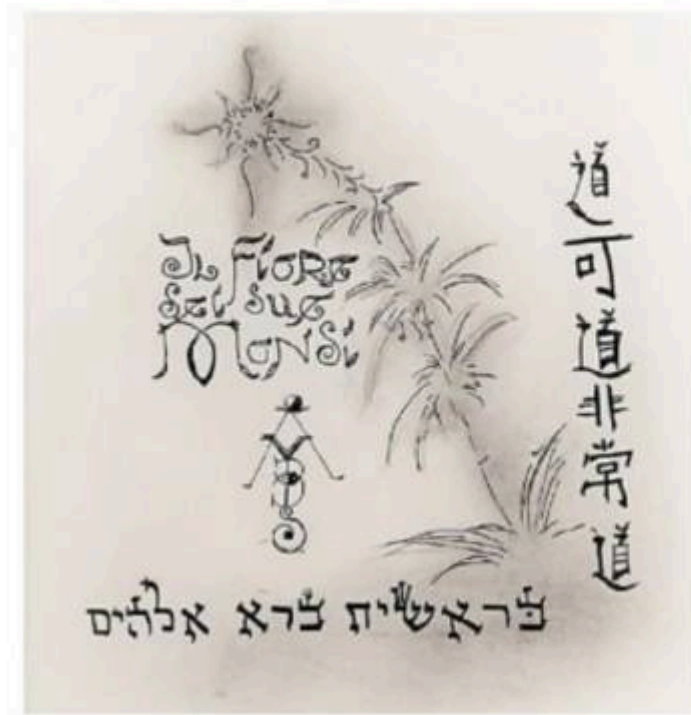 Il Fiore
Dei Due
Mondi
道可道非常道
בראשית ברא אלהים